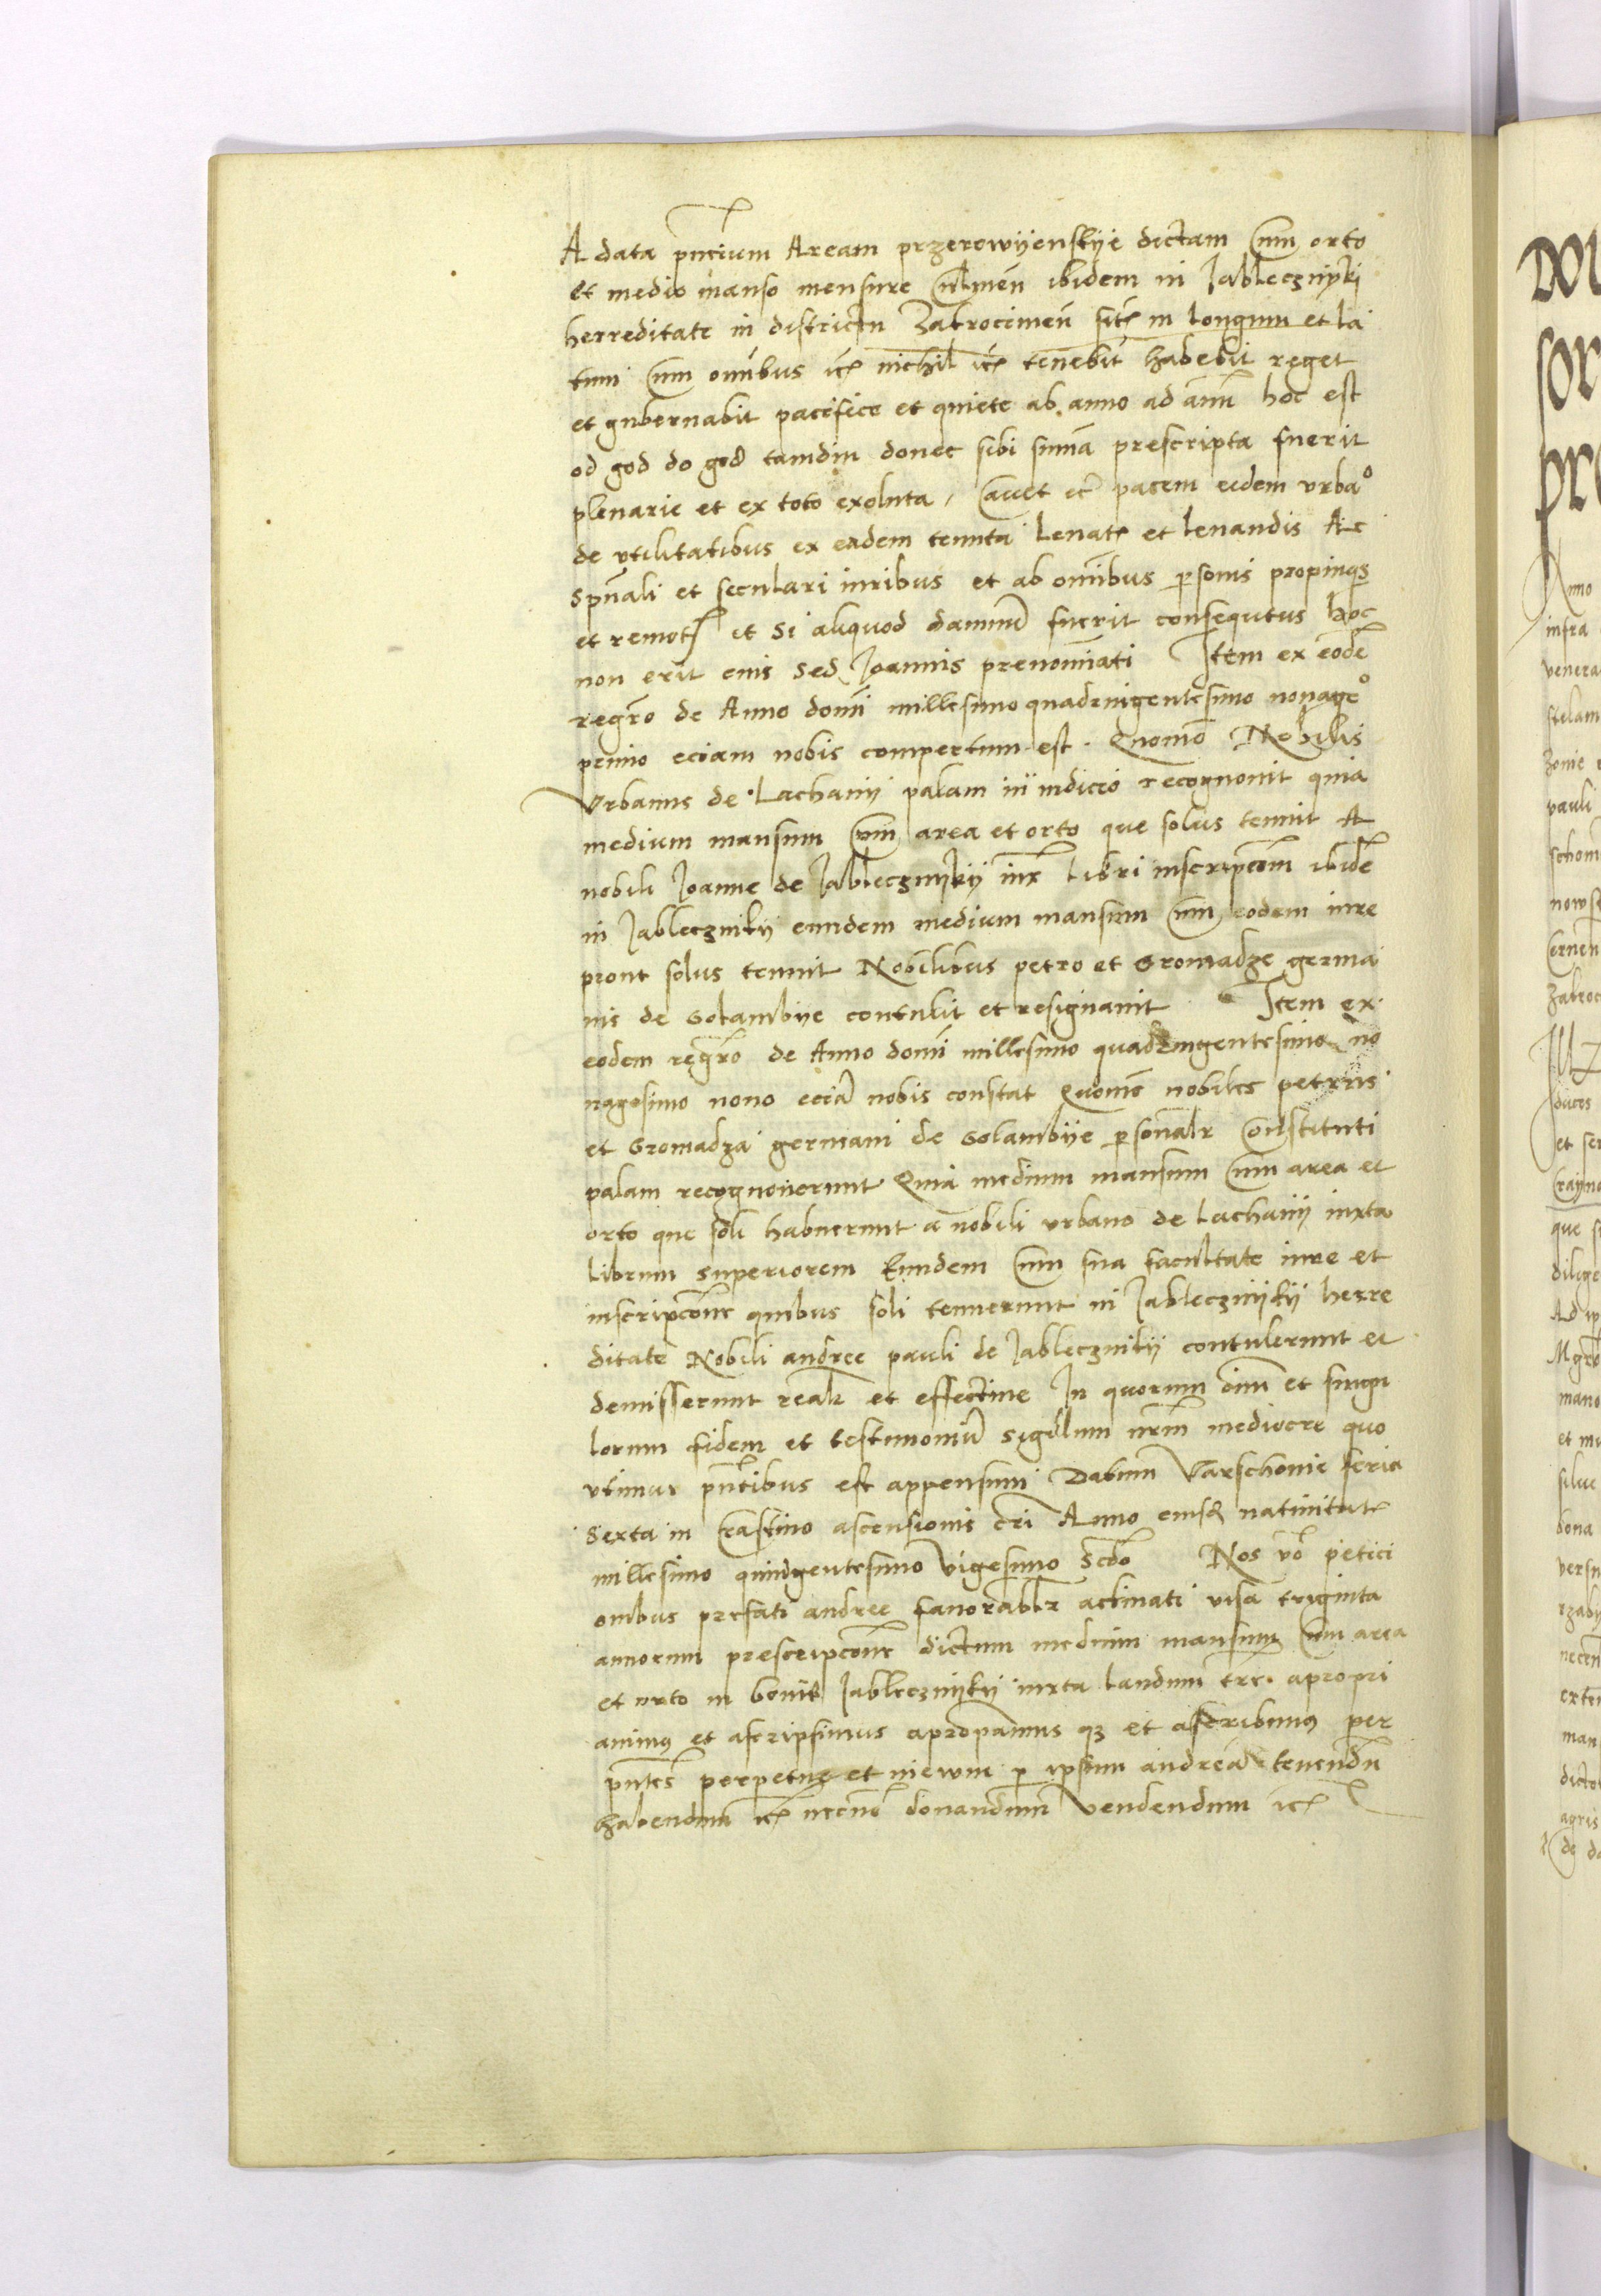 A data pntium Aream przerowyenskye dictam cum orto
et medio manso mensure culmen ibidem in Jablecznyki
herreditate in districtu Zakrocimen sitr in longum et la
tum cum omibus etc nichil etc tenebit habebit reget
et gubernabit pacifice et quiete ab anno ad annu hoc est
od god do god tamdiu donec sibi suma prescripta fuerit
plenarie et ex toto exoluta, cavet etc pacem eidem urbao
de utilitatibus ex eadem tenuta levatr et levandis Ac
spuali et seculari iuribus et ab omibus personis propinqs
et remotis et Si aliquod damnu fuerit consequtus hoc
non erit eius sed Joannis prenomiati Item ex eode
regro de Anno domi millesimo quadringentesimo nonageo
primo eciam nobis compertum est. Quomo Nobilis
Urbanus de Lachanij palam in iudicio recognovit quia
medium mansum cum area et orto que solus tenuit A
nobili Joanne de Jablecznykij iux libri inscripcom ibide
in Jablecznikij eundem medium mansum cum eodem iure
prout solus tenuit Nobilibus petro et Gromadze germa
nis de Golambije contulit et resignavit Item ex
eodem regro de Anno domi millesimo quadringentesimo no
nagesimo nono ecia nobis constat Quomo nobiles petrus
et Gromadza germani de Golambije personalr Constituti
palam recognoverunt Quia medium mansum cum area et
orto que soli habuerunt a nobili urbano de Lachanij iuxta
librum superiorem Eundem cum sua facultate iure et
inscripcione quibus soli tenuerunt in Jablecznijkij herre
ditate Nobili andree pauli de Jablecznikij contulerunt et
demisserunt realr et effective In quorum oium et singu
lorum fidem et testimoniu sigillum nrm mediocre quo
utimur pntibus est appensum Datum Varschovie feria
Sexta in Crastino ascensionis dni Anno eiusd nativitatr
millesimo quingentesimo Vigesimo Scdo Nos vo petici
onibus prefati andree favorablr aclinati visa triginta
annorum prescripcione dictum medium mansum cum area
et orto in bonis Jablecznijkij iuxta laudum tre. apropri
avimus et ascripsimus apropamus qz et ascribimus per
pntes perpetue et in ewm p ipsum andrea tenendu
habendum etc necno donandum Vendendum etc